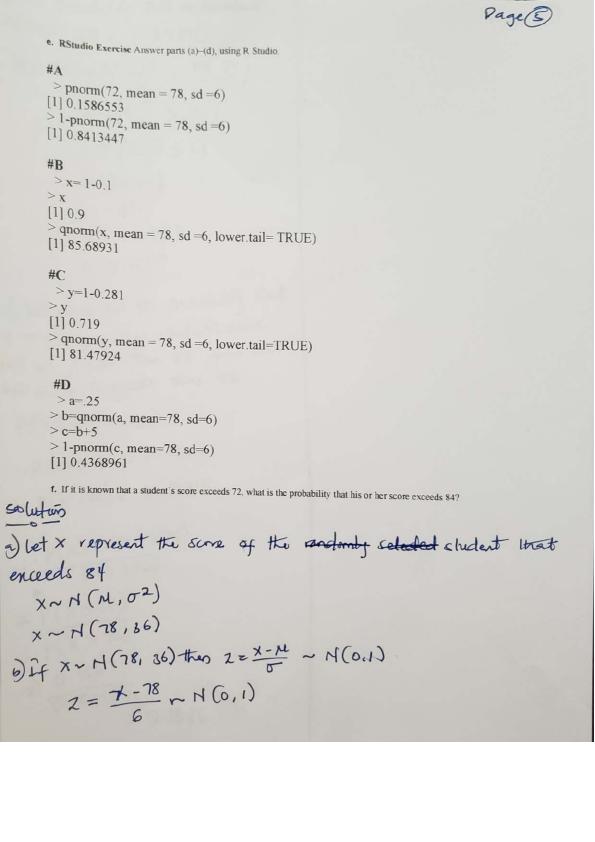 Page 5
e. RStudio Exercise Answer parts (a)-(d), using R Studio.
#A
> pnorm(72, mean = 78, sd =6)
[1] 0.1586553
> 1-pnorm(72, mean = 78, sd =6)
[1] 0.8413447
#B
> x= 1-0.1
> x
[1] 0.9
> qnorm(x, mean = 78, sd =6, lower.tail= TRUE)
[1] 85.68931
#C
> y=1-0.281
> y
[1] 0.719
> qnorm(y, mean = 78, sd =6, lower.tail=TRUE)
[1] 81.47924
#D
> a=.25
> b=qnorm(a, mean=78, sd=6)
> c=b+5
> 1-pnorm(c, mean=78, sd=6)
[1] 0.4368961
f. If it is known that a student's score exceeds 72, what is the probability that his or her score exceeds 84?
Solution
a) Let X represent the score of the randomly selected student that
exceeds 84
X ~ N(M, σ2)
X ~ N(78, 36)
b) If X ~ N(78, 36) then Z = X - M / σ ~ N(0,1)
Z = X - 78 / 6 ~ N(0,1)